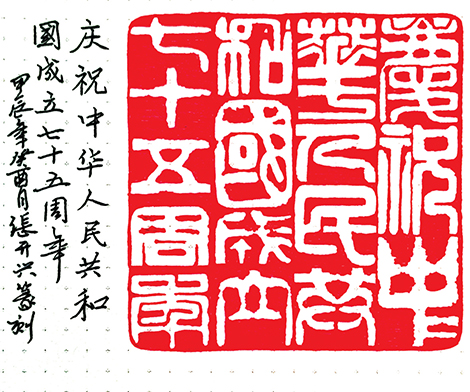 慶祝中
華人民共
和國成立
七十五周年
庆祝中华人民共和
國成立七十五周年
甲辰年癸酉月張开兴篆刻